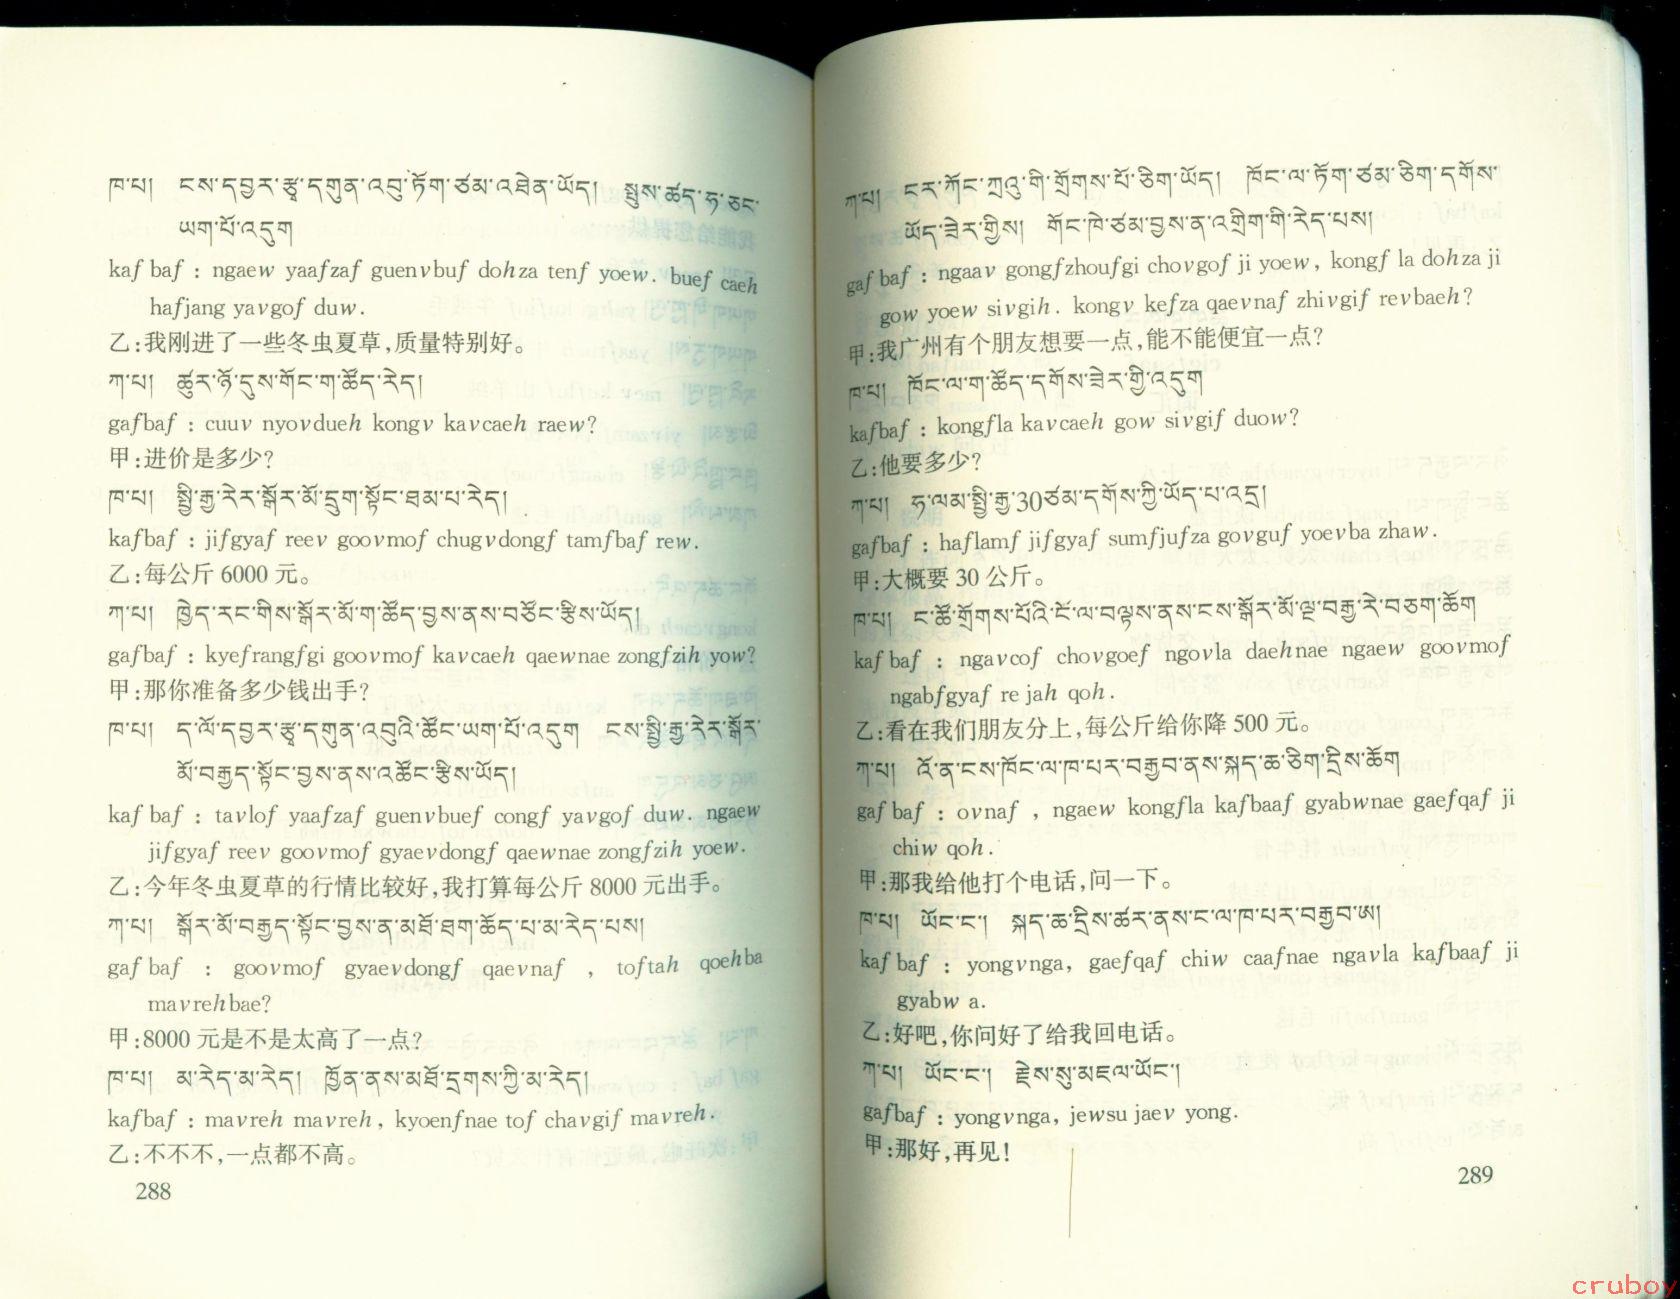 ཁ་པ། ངས་དབྱར་རྩྭ་དགུན་འབུ་ཏོག་ཙམ་འཐེན་ཡོད། སྤུས་ཚད་ཧ་ཅང་
ཡག་པོ་འདུག
kaf baf : ngaew yaafzaf guenvbuf dohza tenf yoew. buef caeh
hafjang yavgof duw.
乙:我刚进了一些冬虫夏草,质量特别好。
ཀ་པ། ཚུར་ཉོ་དུས་གོང་ག་ཚོད་རེད།
gafbaf : cuuv nyovdueh kongv kavcaeh raew?
甲:进价是多少?
ཁ་པ། སྤྱི་རྒྱ་རེར་སྒོར་མོ་དྲུག་སྟོང་ཐམ་པ་རེད།
kafbaf : jifgyaf reev goovmof chugvdongf tamfbaf rew.
乙:每公斤 6000 元。
ཀ་པ། ཁྱེད་རང་གིས་སྒོར་མོ་ག་ཚོད་བྱས་ནས་བཙོང་རྩིས་ཡོད།
gafbaf : kyefrangfgi goovmof kavcaeh qaewnae zongfzih yow?
甲:那你准备多少钱出手?
ཁ་པ། ད་ལོ་དབྱར་རྩྭ་དགུན་འབུའི་ཚོང་ཡག་པོ་འདུག ངས་སྤྱི་རྒྱ་རེར་སྒོར་
མོ་བརྒྱད་སྟོང་བྱས་ནས་འཚོང་རྩིས་ཡོད།
kaf baf : tavlof yaafzaf guenvbuef congf yavgof duw. ngaew
jifgyaf reev goovmof gyaevdongf qaewnae zongfzih yoew.
乙:今年冬虫夏草的行情比较好,我打算每公斤 8000 元出手。
ཀ་པ། སྒོར་མོ་བརྒྱད་སྟོང་བྱས་ན་མཐོ་ཐག་ཆོད་པ་མ་རེད་པས།
gaf baf : goovmof gyaevdongf qaevnaf , toftah qoehba
mavrehbae?
甲:8000 元是不是太高了一点?
ཁ་པ། མ་རེད་མ་རེད། ཁྱོན་ནས་མཐོ་དྲགས་ཀྱི་མ་རེད།
kafbaf : mavreh mavreh, kyoenfnae tof chavgif mavreh.
乙:不不不,一点都不高。
288
ཀ་པ། ངར་ཀོང་ཀྲའུ་གི་གྲོགས་པོ་ཅིག་ཡོད། ཁོང་ལ་ཏོག་ཙམ་ཅིག་དགོས་
ཡོད་ཟེར་གྱིས། གོང་ཁེ་ཙམ་བྱས་ན་འགྲིག་གི་རེད་པས།
gaf baf : ngaav gongfzhoufgi chovgof ji yoew, kongf la dohza ji
gow yoew sivgih. kongv kefza qaevnaf zhivgif revbaeh?
甲:我广州有个朋友想要一点,能不能便宜一点?
ཁ་པ། ཁོང་ལ་ག་ཚོད་དགོས་ཟེར་གྱི་འདུག
kafbaf : kongfla kavcaeh gow sivgif duow?
乙:他要多少?
ཀ་པ། ཧ་ལམ་སྤྱི་རྒྱ་30ཙམ་དགོས་ཀྱི་ཡོད་པ་འདྲ།
gafbaf : haflamf jifgyaf sumfjufza govguf yoevba zhaw.
甲:大概要 30 公斤。
ཁ་པ། ང་ཚོ་གྲོགས་པོའི་ངོ་ལ་བལྟས་ནས་ངས་སྒོར་མོ་ལྔ་བརྒྱ་རེ་བཅག་ཆོག
kaf baf : ngavcof chovgoef ngovla daehnae ngaew goovmof
ngabfgyaf re jah qoh.
乙:看在我们朋友分上,每公斤给你降 500 元。
ཀ་པ། འོ་ན་ངས་ཁོང་ལ་ཁ་པར་བརྒྱབ་ནས་སྐད་ཆ་ཅིག་དྲིས་ཆོག
gaf baf : ovnaf , ngaew kongfla kafbaaf gyabwnae gaefqaf ji
chiw qoh.
甲:那我给他打个电话,问一下。
ཁ་པ། ཡོང་ང་། སྐད་ཆ་དྲིས་ཚར་ནས་ང་ལ་ཁ་པར་བརྒྱབ་ཨ།
kaf baf : yongvnga, gaefqaf chiw caafnae ngavla kafbaaf ji
gyabw a.
乙:好吧,你问好了给我回电话。
ཀ་པ། ཡོང་ང་། རྗེས་སུ་མཇལ་ཡོང་།
gafbaf : yongvnga, jewsu jaev yong.
甲:那好,再见!
289
cruboy